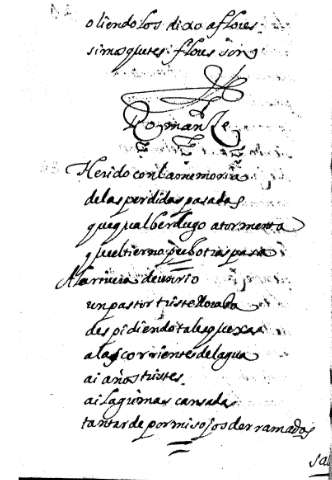 oliendolos dixo a flores
sino quites flores son
Romançe
Herido con la memoria
de las perdidas pasadas
que qual berdugo atormenta
A la ruiera de un rio
un pastor triste lloraba
despidiendo tales quexas
a las corrientes del agua
ai años tristes
ai lagrimas cansadas
tan tarde por mis ojos derramadas